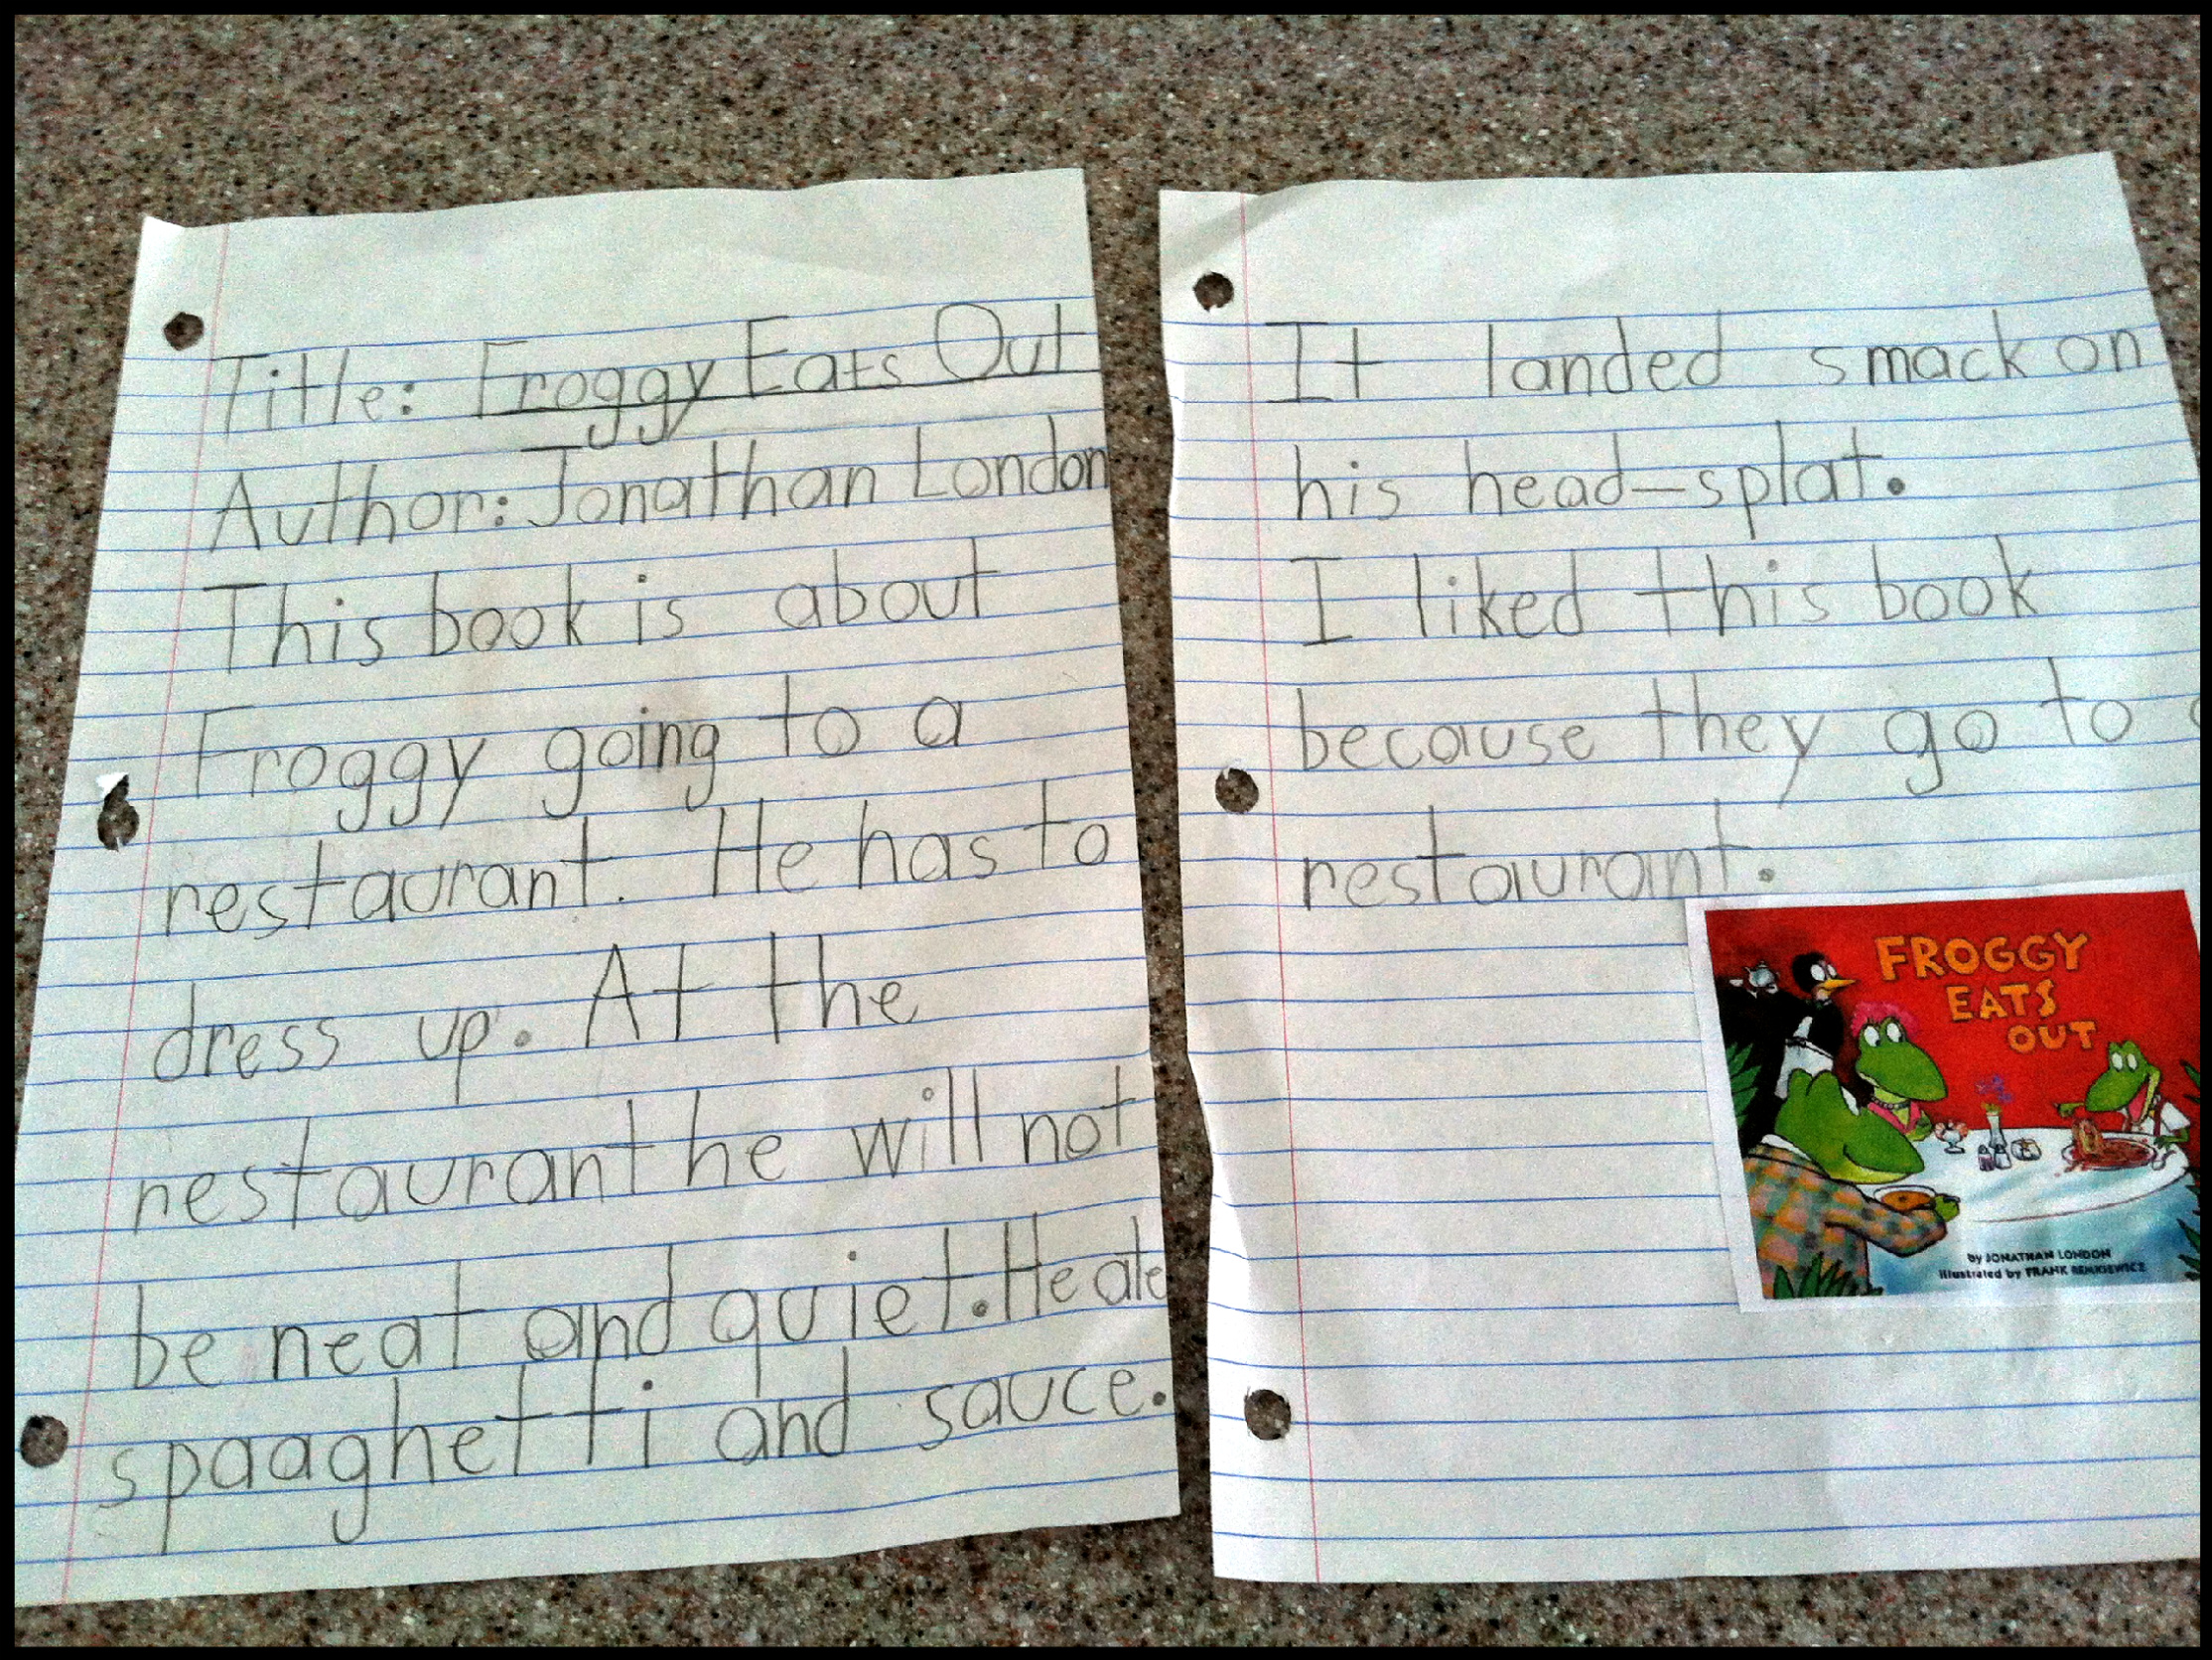 Title: Froggy Eats Out
Author: Jonathan London
This book is about
Froggy going to a
restaurant. He has to
dress up. At the
restaurant he will not
be neat and quiet. He ate
spaaghetti and sauce.
It landed smack on
his head-splat.
I liked this book
because they go to
restaurant.
FROGGY
EATS
OUT
by JONATHAN LONDON
illustrated by FRANK REMKIEWICZ